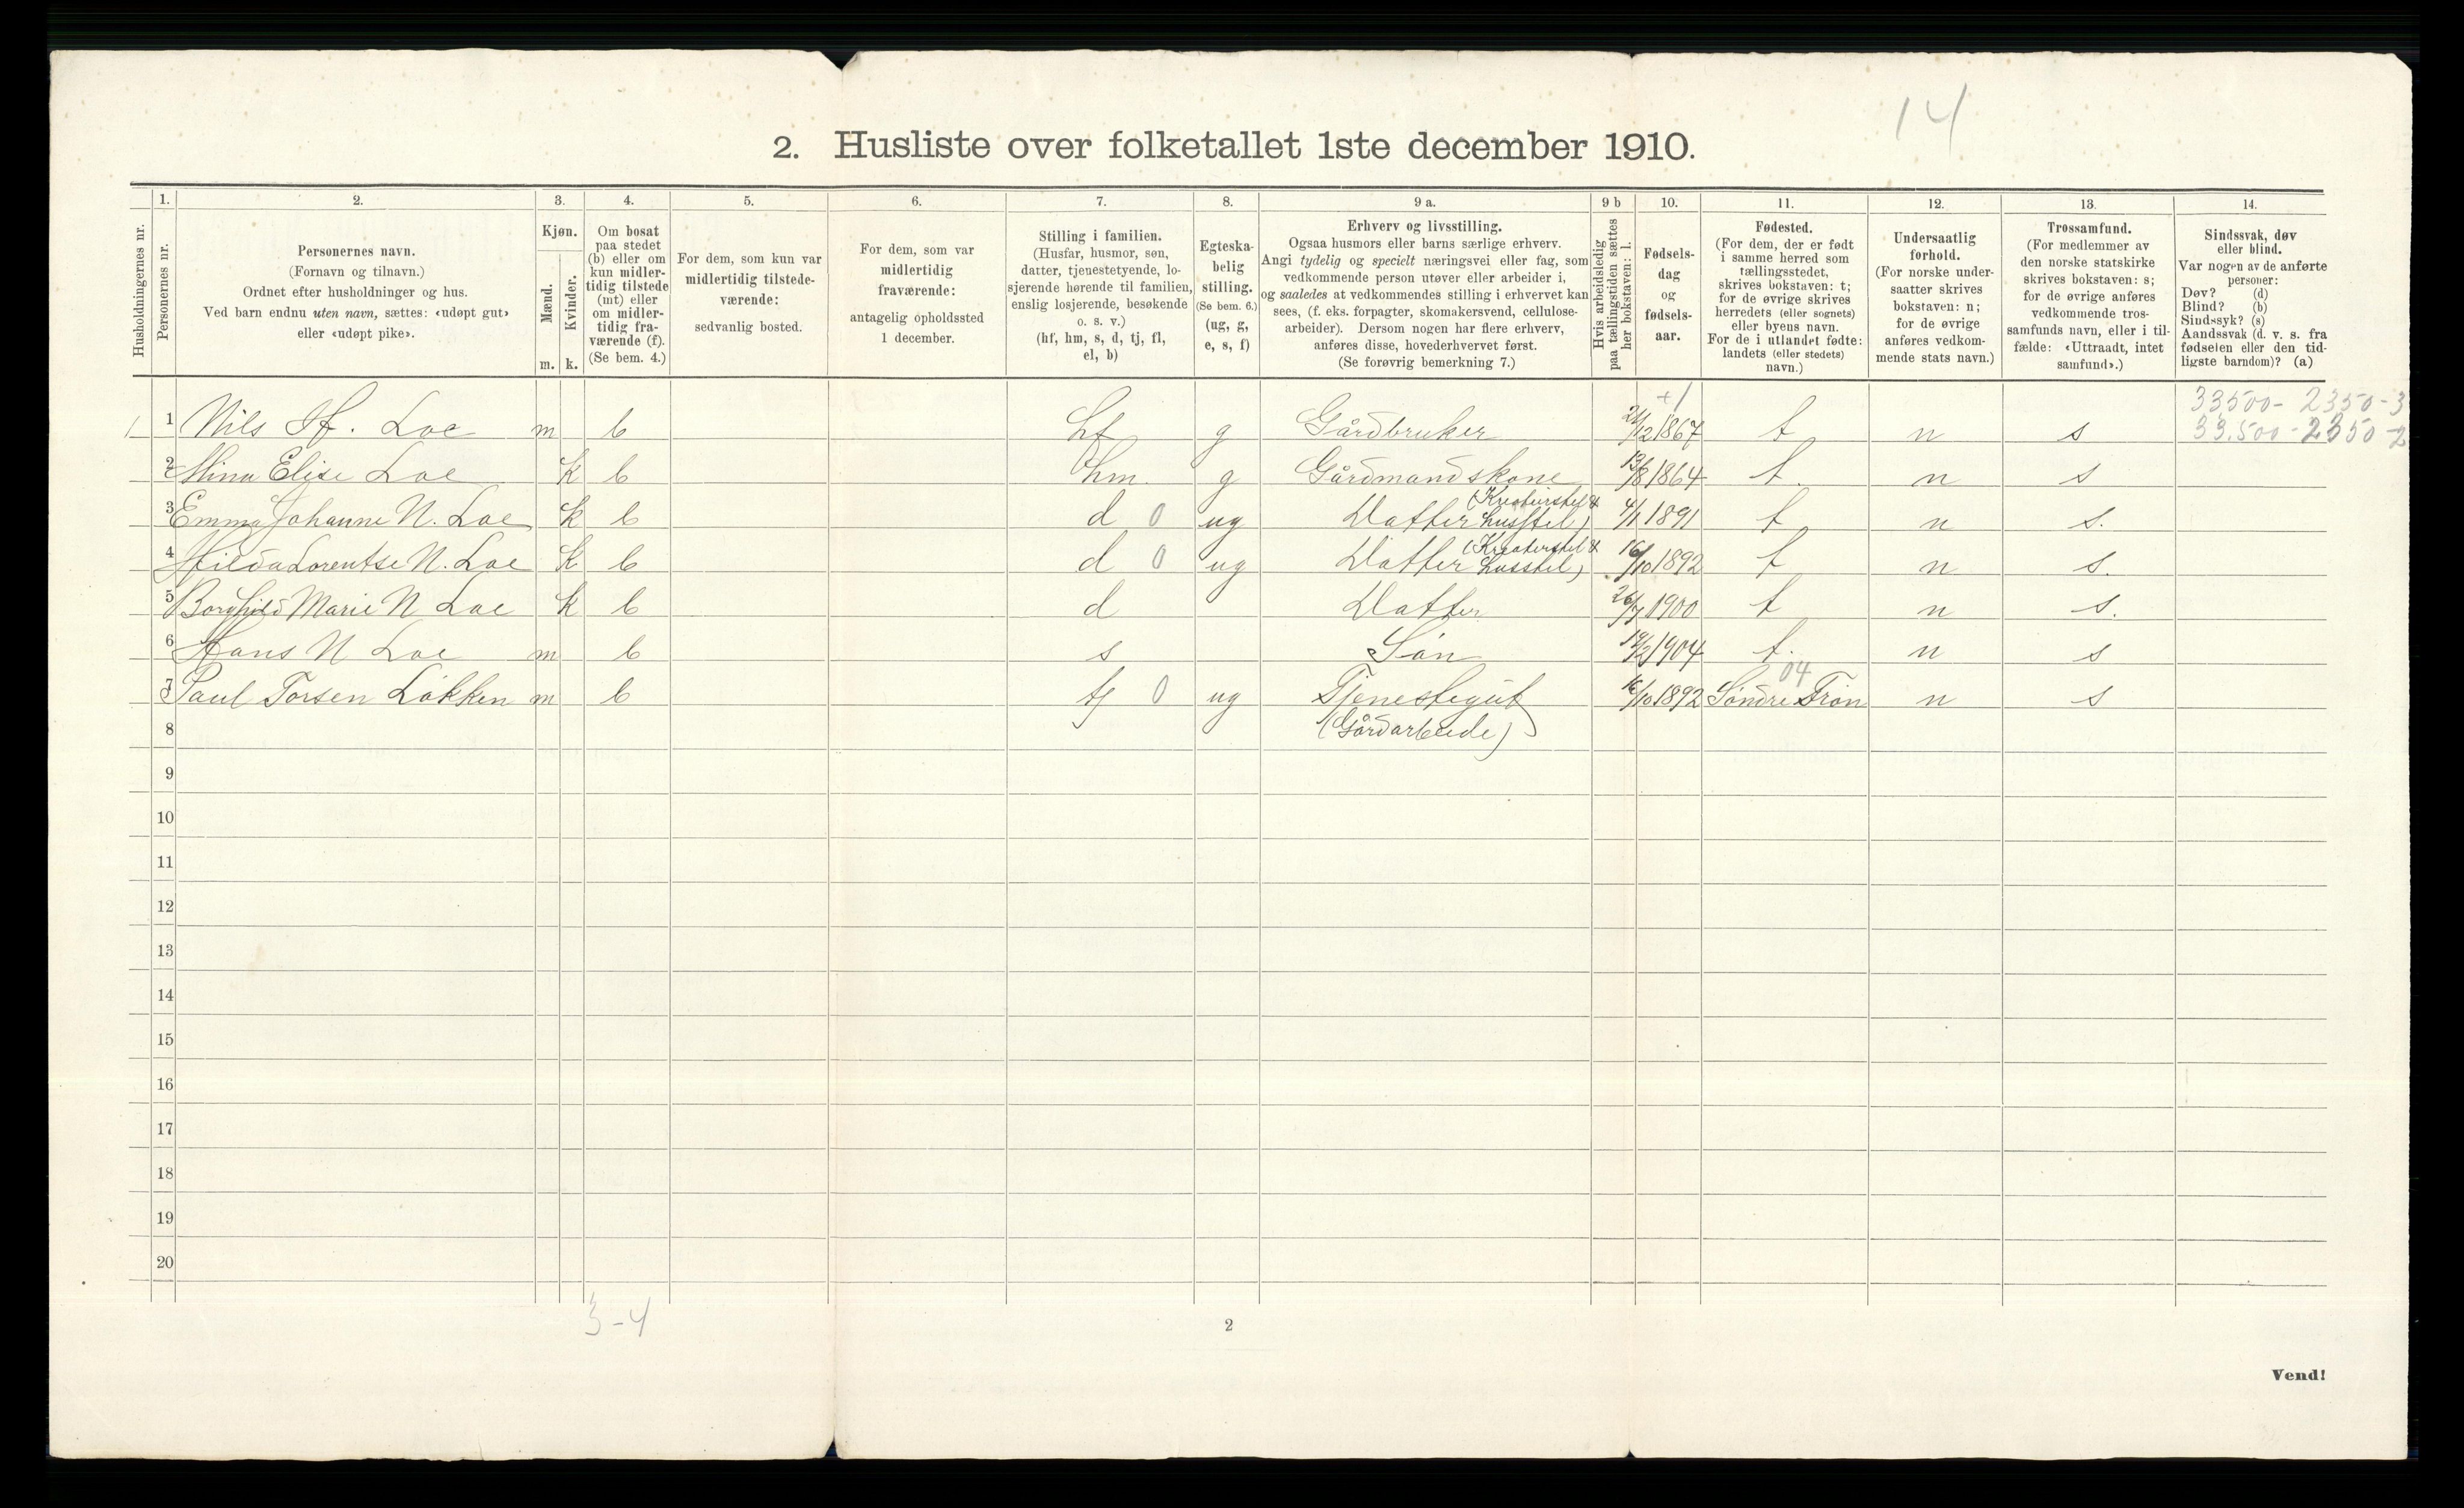 14
2. Husliste over folketallet 1ste december 1910.
1. 2. 3. 4. 5. 6. 7. 8. 9 a. 9 b 10. 11. 12. 13. 14.
Husholdningernes nr.
Personernes nr.
Personernes navn.
(Fornavn og tilnavn.)
Ordnet efter husholdninger og hus.
Ved barn endnu uten navn, sættes: «udøpt gut»
eller «udøpt pike».
Kjøn.
Mænd.
Kvinder.
m. k.
Om bosat
paa stedet
(b) eller om
kun midler-
tidig tilstede
(mt) eller
om midler-
tidig fra-
værende (f).
(Se bem. 4.)
For dem, som kun var
midlertidig tilstede-
værende:
sedvanlig bosted.
For dem, som var
midlertidig
fraværende:
antagelig opholdssted
1 december.
Stilling i familien.
(Husfar, husmor, søn,
datter, tjenestetyende, lo-
sjerende hørende til familien,
enslig losjerende, besøkende
o. s. v.)
(hf, hm, s, d, tj, fl,
el, b)
Egteska-
belig
stilling.
(Se bem. 6.)
(ug, g,
e, s, f)
Erhverv og livsstilling.
Ogsaa husmors eller barns særlige erhverv.
Angi tydelig og specielt næringsvei eller fag, som
vedkommende person utøver eller arbeider i,
og saaledes at vedkommendes stilling i erhvervet kan
sees, (f. eks. forpagter, skomakersvend, cellulose-
arbeider). Dersom nogen har flere erhverv,
anføres disse, hovederhvervet først.
(Se forøvrig bemerkning 7.)
Hvis arbeidsledig
paa tællingstiden sættes
her bokstaven: l.
Fødsels-
dag
og
fødsels-
aar.
Fødested.
(For dem, der er født
i samme herred som
tællingsstedet,
skrives bokstaven: t;
for de øvrige skrives
herredets (eller sognets)
eller byens navn.
For de i utlandet fødte:
landets (eller stedets)
navn.)
Undersaatlig
forhold.
(For norske under-
saatter skrives
bokstaven: n;
for de øvrige
anføres vedkom-
mende stats navn.)
Trossamfund.
(For medlemmer av
den norske statskirke
skrives bokstaven: s;
for de øvrige anføres
vedkommende tros-
samfunds navn, eller i til-
fælde: «Uttraadt, intet
samfund».)
Sindssvak, døv
eller blind.
Var nogen av de anførte
personer:
Døv? (d)
Blind? (b)
Sindssyk? (s)
Aandssvak (d. v. s. fra
fødselen eller den tid-
ligste barndom)? (a)
+1 33500- 2350-3
1 1 Nils H. Loe m b hf g Gårdbruker 21/12 1867 t n s 33.500-2350-2
2 Mina Elise Loe k b hm. g Gårdmandskone 13/8 1864 t. n s
(Kreaturstel &
3 Emma Johanne N. Loe k b d 0 ug Datter husstel) 4/1 1891 t n s.
(Kreaturstel &
4 Hilda Lorentse N. Loe k b d 0 ug Datter husstel) 16/10 1892 t n s.
5 Borghild Marie N Loe k b d Datter 26/7 1900 t n s.
6 Hans N Loe m b s Søn 19/2 1904 t. n s
04
7 Paul Torsen Løkken m b tj 0 ug Tjenestegut 16/10 1892 Søndre Frøn n s
8 (Gårdarbeide)
9
10
11
12
13
14
15
16
17
18
19
20
3-4
2
Vend!